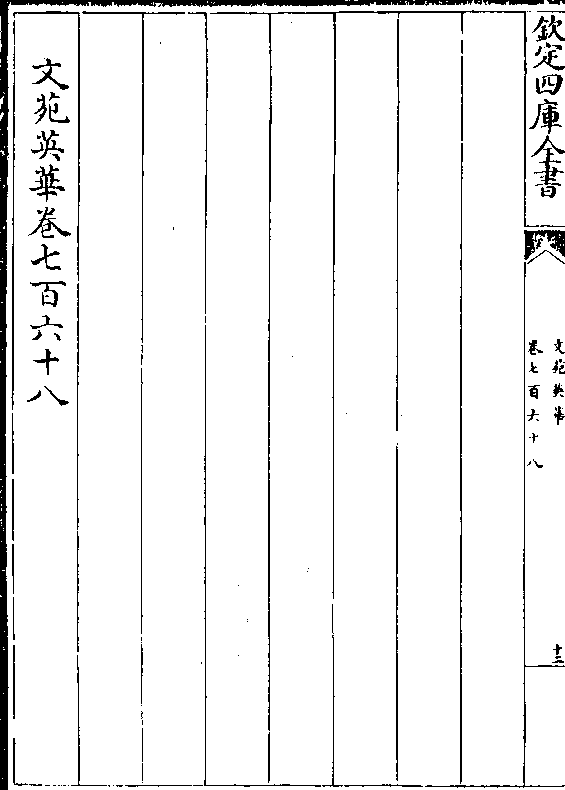 欽定四庫全書
文苑英華
卷七百六十八
十三
文苑英華卷七百六十八